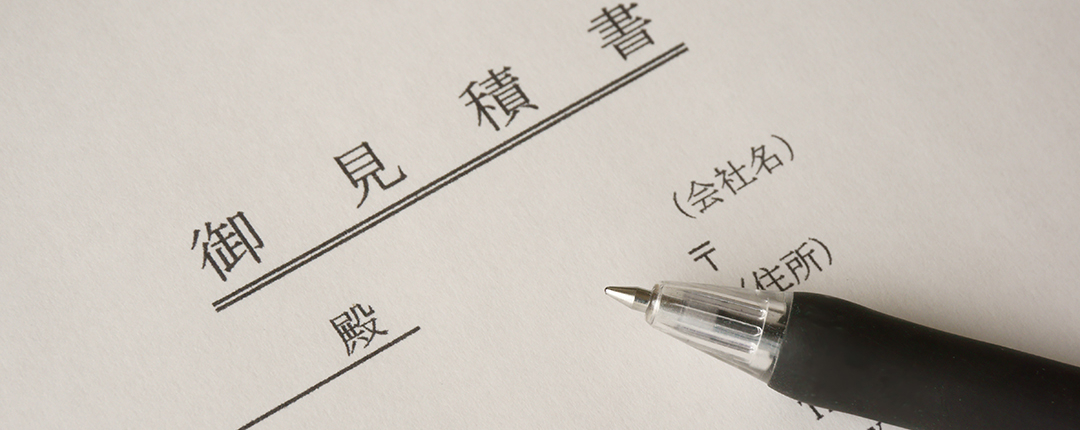 御見積書
殿
(会社名)
〒
(住所)